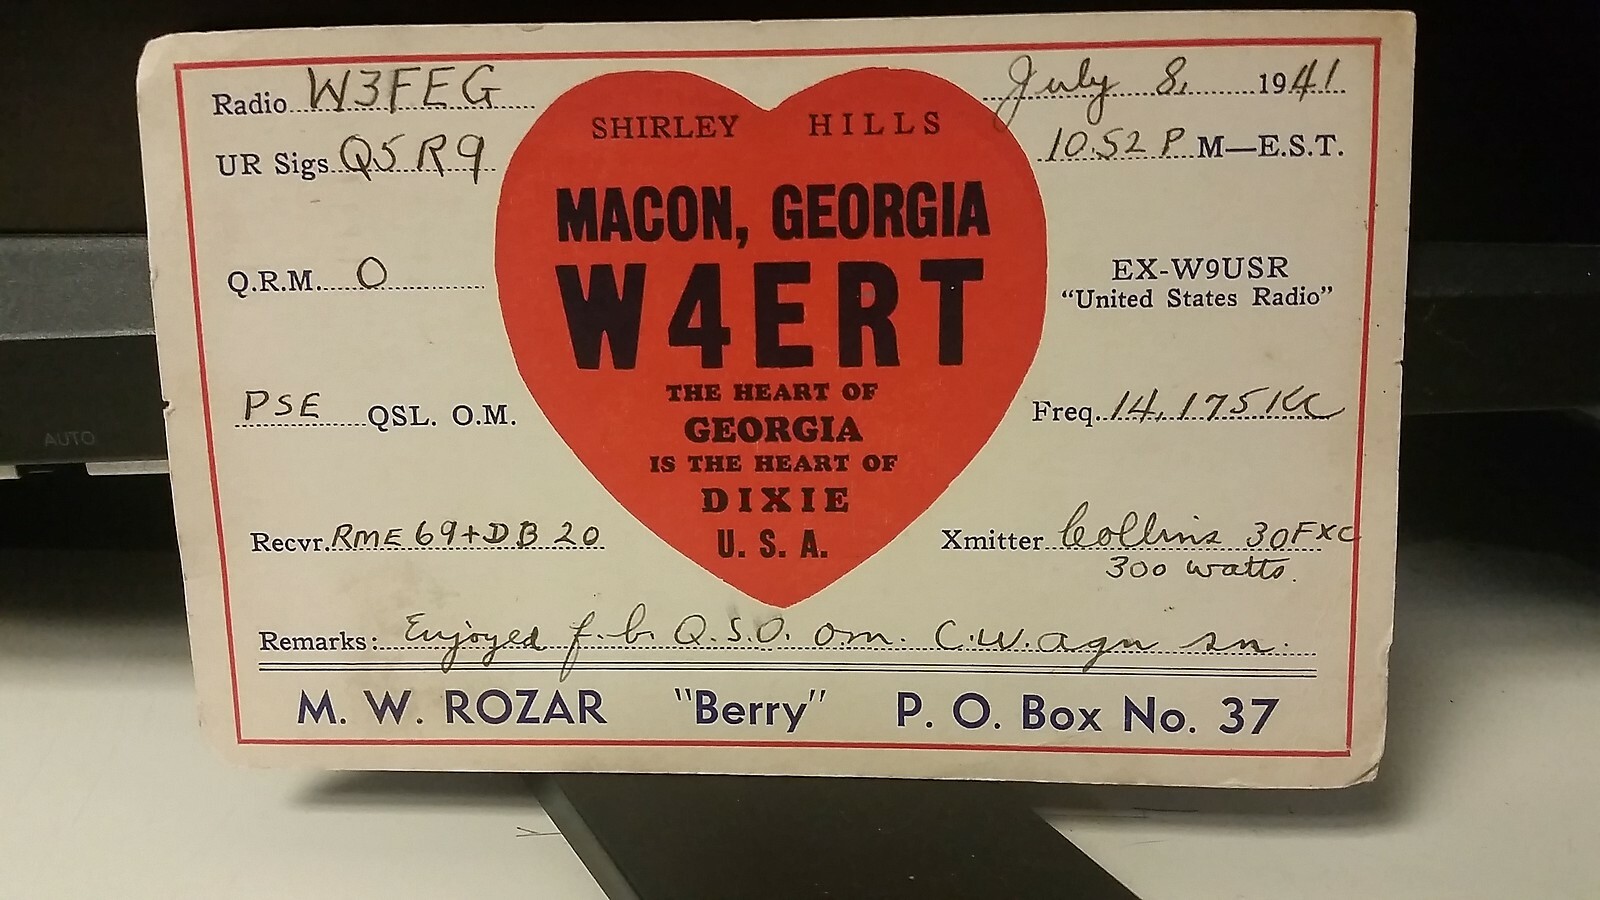 Radio W3FEG
July 8, 1941
SHIRLEY HILLS
UR Sigs Q5 R9
10.52 P M—E.S.T.
MACON, GEORGIA
Q.R.M. 0
W4ERT
EX-W9USR
"United States Radio"
PSE QSL. O.M.
THE HEART OF
GEORGIA
IS THE HEART OF
DIXIE
U. S. A.
Freq. 14,175 KC
Recvr. RME 69+DB 20
Xmitter Collins 30FXC
300 watts.
Remarks: Enjoyed f.b. Q.S.O. om. C.U. agn sn.
M. W. ROZAR "Berry" P. O. Box No. 37
AUTO